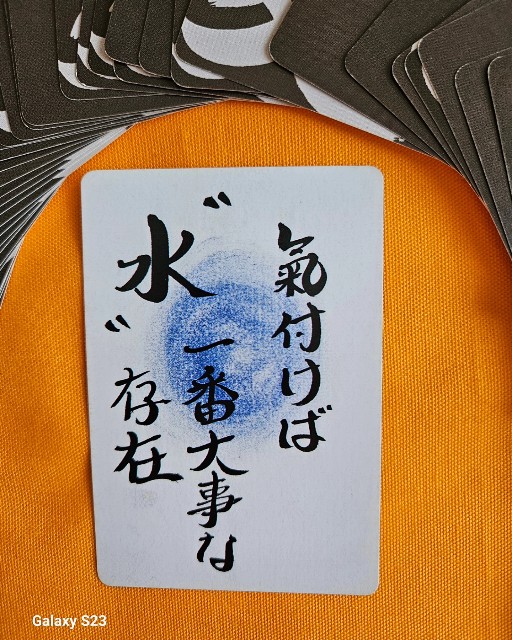 氣付けば
〝水〟
一番大事な
存在
Galaxy S23